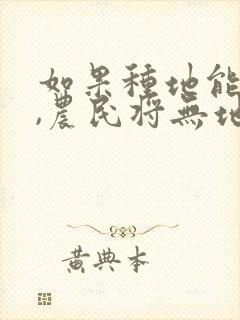 如果種地能
,農民將無地
黄典本